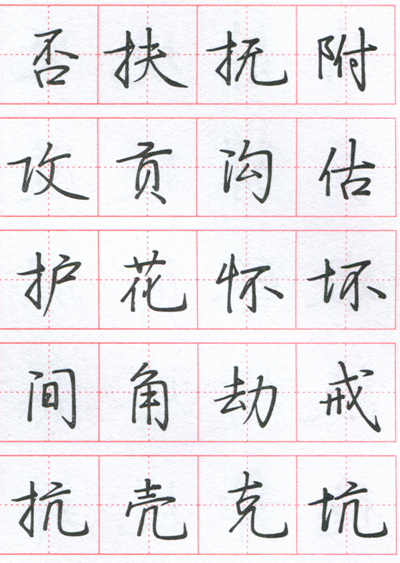 否扶抚附
攻贡沟估
护花怀坏
间角劫戒
抗壳克坑